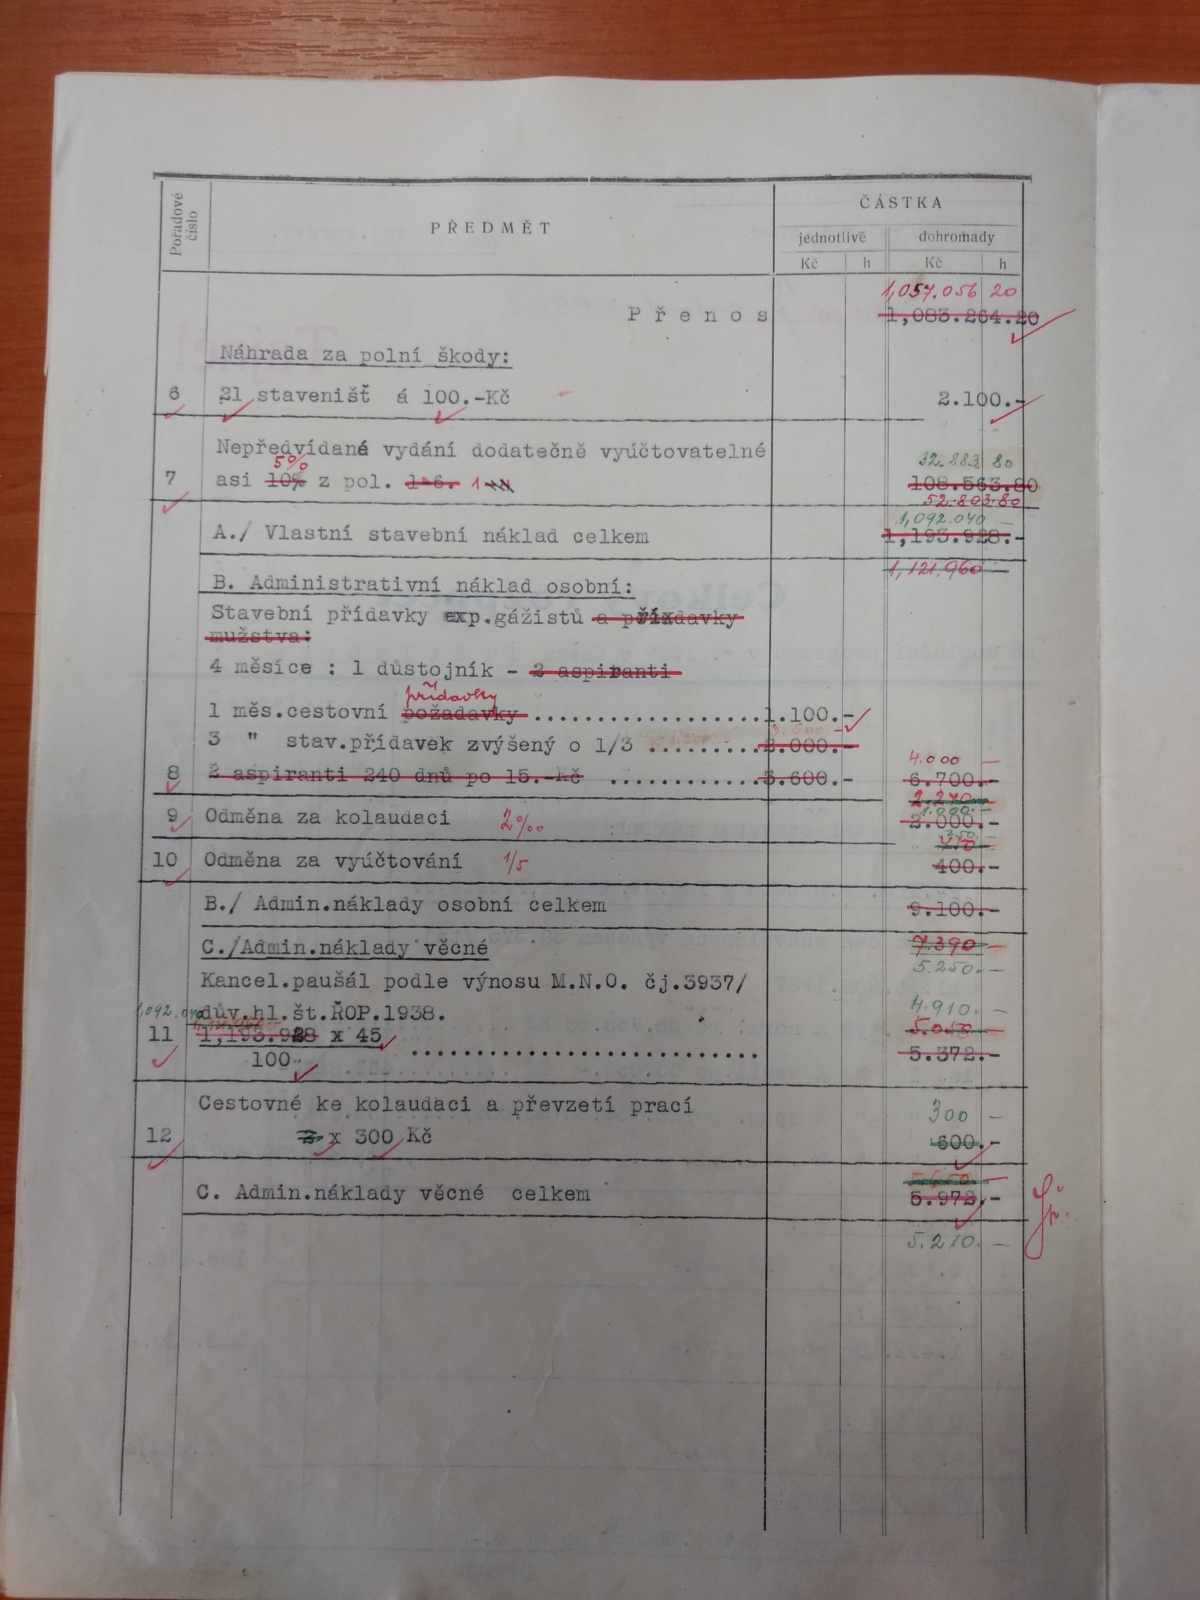 Pořadové číslo
PŘEDMĚT
ČÁSTKA
jednotlivě dohromady
Kč h Kč h
1,057.056 20
Přenos 1,083.264.20
Náhrada za polní škody:
6 21 stavenišť á 100.-Kč 2.100.-
Nepředvídaná vydání dodatečně vyúčtovatelné
5% 32.883 80
7 asi 10% z pol. 1-6. 1 108.563.80
52.803.80
1,092.040 —
A./ Vlastní stavební náklad celkem 1,193.928.-
1,121,960 —
B. Administrativní náklad osobní:
Stavební přídavky exp.gážistů a přídavky
mužstva:
4 měsíce : 1 důstojník - 2 aspiranti
přídavky
1 měs.cestovní požadavky ................... 1.100.-
3.600.-
3 " stav.přídavek zvýšený o 1/3 ......... 2.000.-
4.000 —
8 2 aspiranti 240 dnů po 15.-Kč ............ 3.600.- 6.700.-
2.240
9 Odměna za kolaudaci 2‰ 2.000.-
750
10 Odměna za vyúčtování 1/5 400.-
B./ Admin.náklady osobní celkem 9.100.-
7.390 —
C./Admin.náklady věcné
5.250.—
Kancel.paušál podle výnosu M.N.O. čj.3937/
1,092.040 dův.hl.št.ŘOP.1938. 4.910.—
5.050 —
11 1,193.928 x 45
100 ............................ 5.372.-
Cestovné ke kolaudaci a převzetí prací 300 —
12 2 x 300 Kč 600.-
C. Admin.náklady věcné celkem 5.972.-
5.210.—